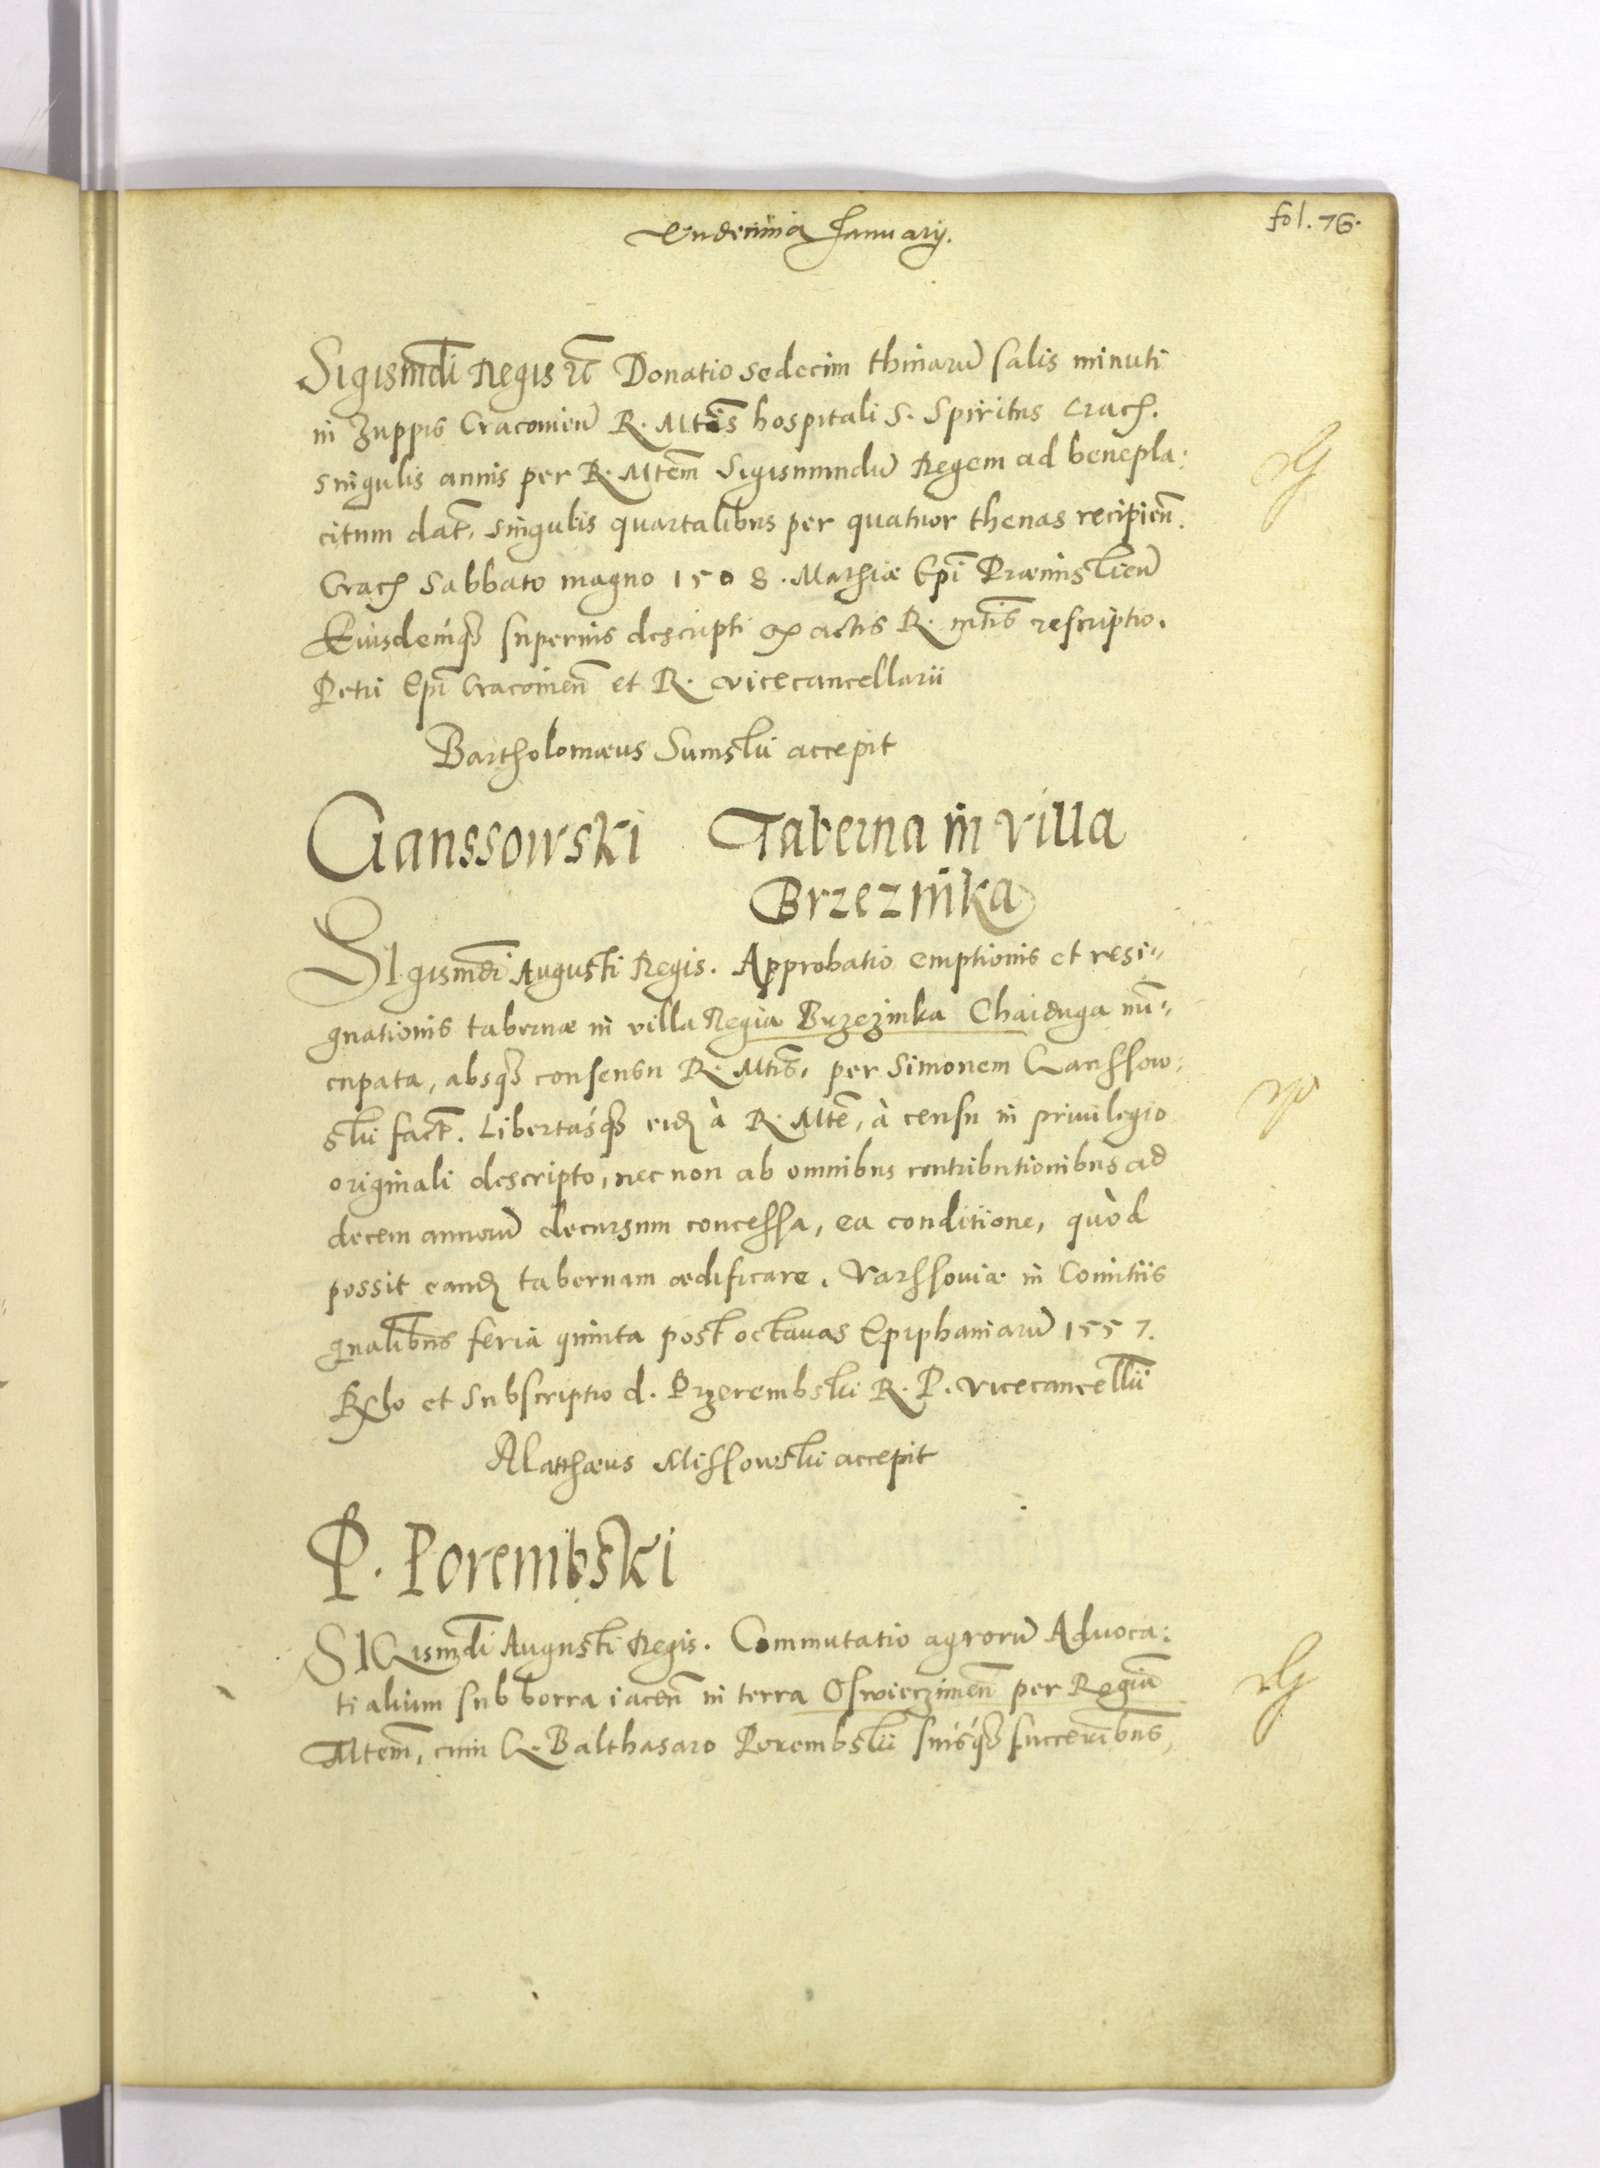 Undecima Januarij.
fol. 76.
Sigismdi Regis etc Donatio sedecim thinarū salis minuti
in Zuppis Cracovieñ R. Mtis hospitali S. Spiritus Crac.
singulis annis per R. Mtem Sigismundū Regem ad benepla:
citum dat, singulis quartalibus per quatuor thenas recipieñ.
Crac Sabbato magno 1508. Mathiæ Epi Præmislieñ
Eiusdemq3 superius descripti ex actis R. mtis rescriptio.
Petri Epi Cracovieñ et R. vicecancellarii
Bartholomæus Sumski accepit
Ganssowski Taberna in villa
Brzeznika
Sigismdi Augusti Regis. Approbatio emptionis et resi-
gnationis tabernæ in villa Regia Brzezinka Chaiduga nū-
cupata, absq3 consensu R. Mtis, per Simonem Ganssow-
ski fact. Libertasq3 eid à R. Mte, à censu in privilegio
originali descripto, nec non ab omnibus contributionibus ad
decem annorū decursum concessa, ea conditione, quòd
possit eand tabernam ædificare. Varssoviæ in Comitiis
gnalibus feria quinta post octavas Epiphaniarū 1557.
Rlo et Subscriptio d. Przerembski R. P. Vicecancellii
Matthæus Missowski accepit
P. Porembski
SIGismdi Augusti Regis. Commutatio agrorū Advoca:
tialium sub borra iaceñ in terra Oswieczimeñ per Regiā
Mtem, cum G. Balthasaro Porembski suisq3 succeribus,